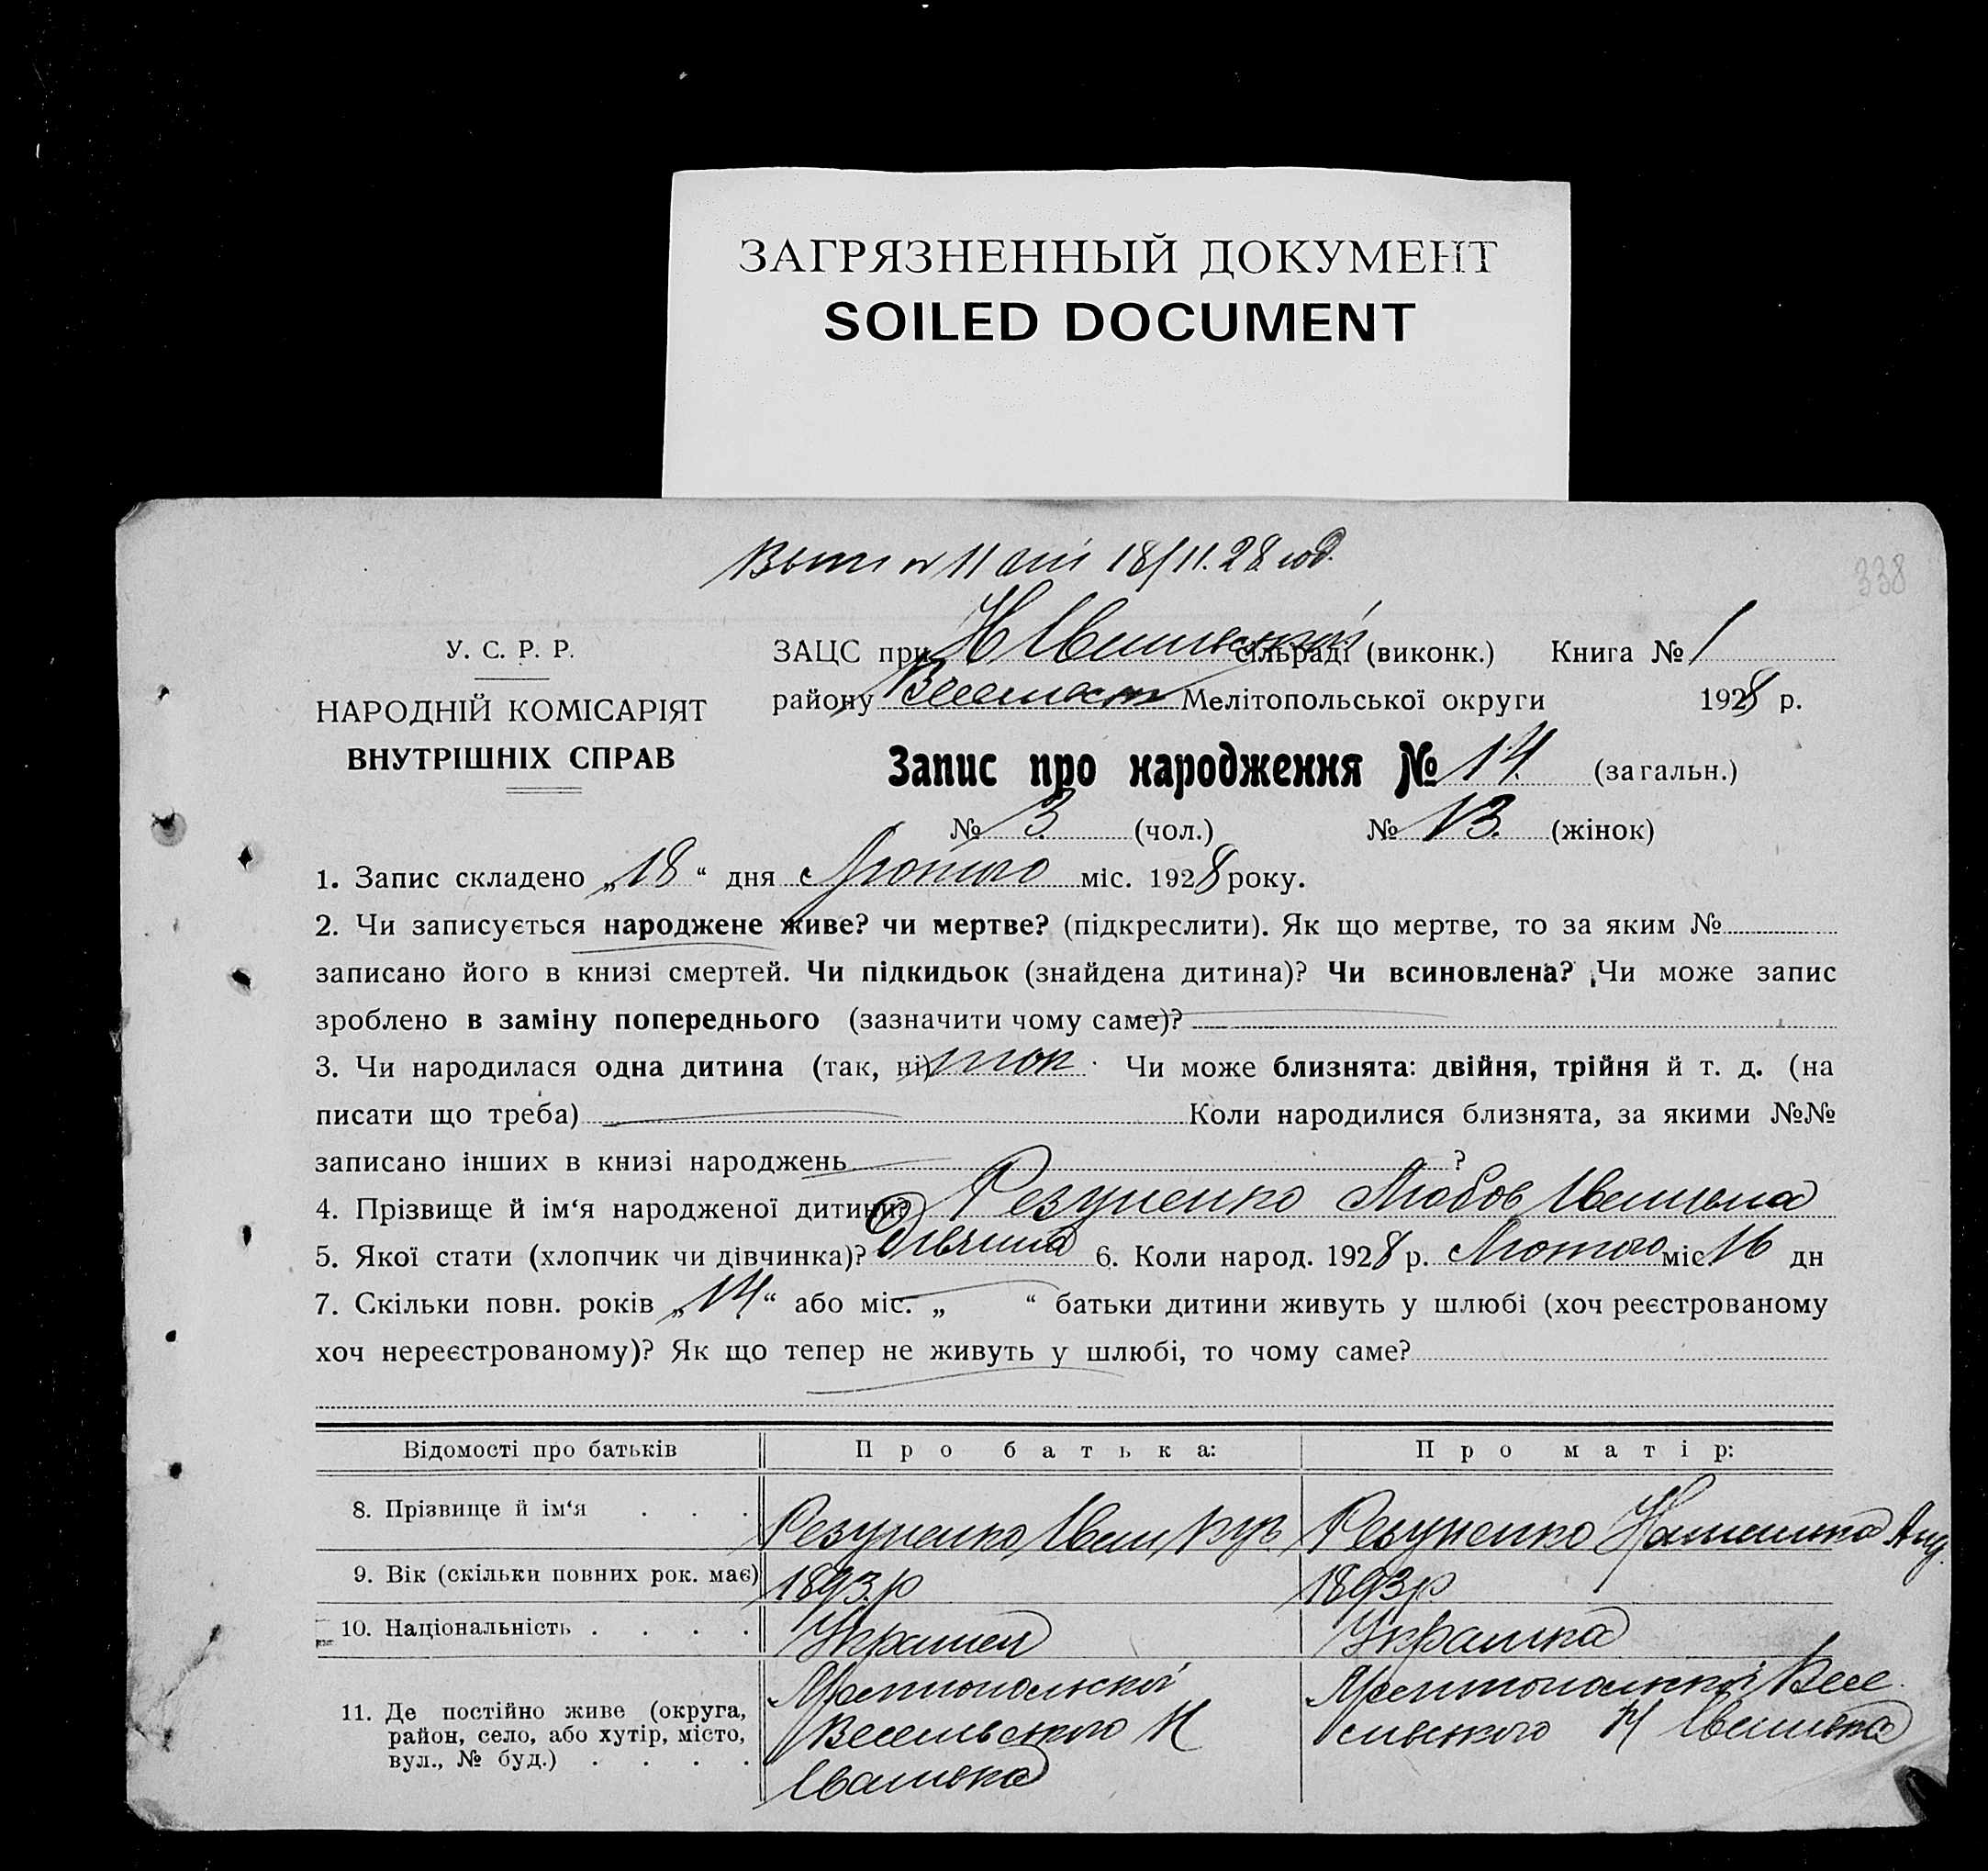 ЗАГРЯЗНЕННЫЙ ДОКУМЕНТ
SOILED DOCUMENT
18/II.28 год.
338
У. С. Р. Р.
НАРОДНІЙ КОМІСАРІЯТ
ВНУТРІШНІХ СПРАВ
ЗАЦС при Н Іванівській сільраді (виконк.) Книга № 1
району Мелітопольської округи 1928 р.
Запис про народження № 14 (загальн.)
№ 3. (чол.) № 13. (жінок)
1. Запис складено „18“ дня Лютого міс. 1928 року.
2. Чи записується народжене живе? чи мертве? (підкреслити). Як що мертве, то за яким №
записано його в книзі смертей. Чи підкидьок (знайдена дитина)? Чи всиновлена? Чи може запис
зроблено в заміну попереднього (зазначити чому саме)?
3. Чи народилася одна дитина (так, ні) так. Чи може близнята: двійня, трійня й т. д. (на
писати що треба) Коли народилися близнята, за якими №№
записано інших в книзі народжень ?
4. Прізвище й ім‘я народженої дитини? Резуненко Любов Іванівна
5. Якої стати (хлопчик чи дівчинка)? Дівчина 6. Коли народ. 1928 р. Лютого міс. 16 дн
7. Скільки повн. років „14“ або міс. „ “ батьки дитини живуть у шлюбі (хоч реєстрованому
хоч нереєстрованому)? Як що тепер не живуть у шлюбі, то чому саме?
Відомості про батьків Про батька: Про матір:
8. Прізвище й ім‘я . . . Резуненко Іван Резуненко
9. Вік (скільки повних рок. має) 1893.р 1893р
10. Національність . . . . Українец Українка
11. Де постійно живе (округа,
район, село, або хутір, місто,
вул., № буд.) . . . .
Мелітопольскої
Весельского Н
Іванівка
Мелітопольскої Весе
льского Н Іванівка